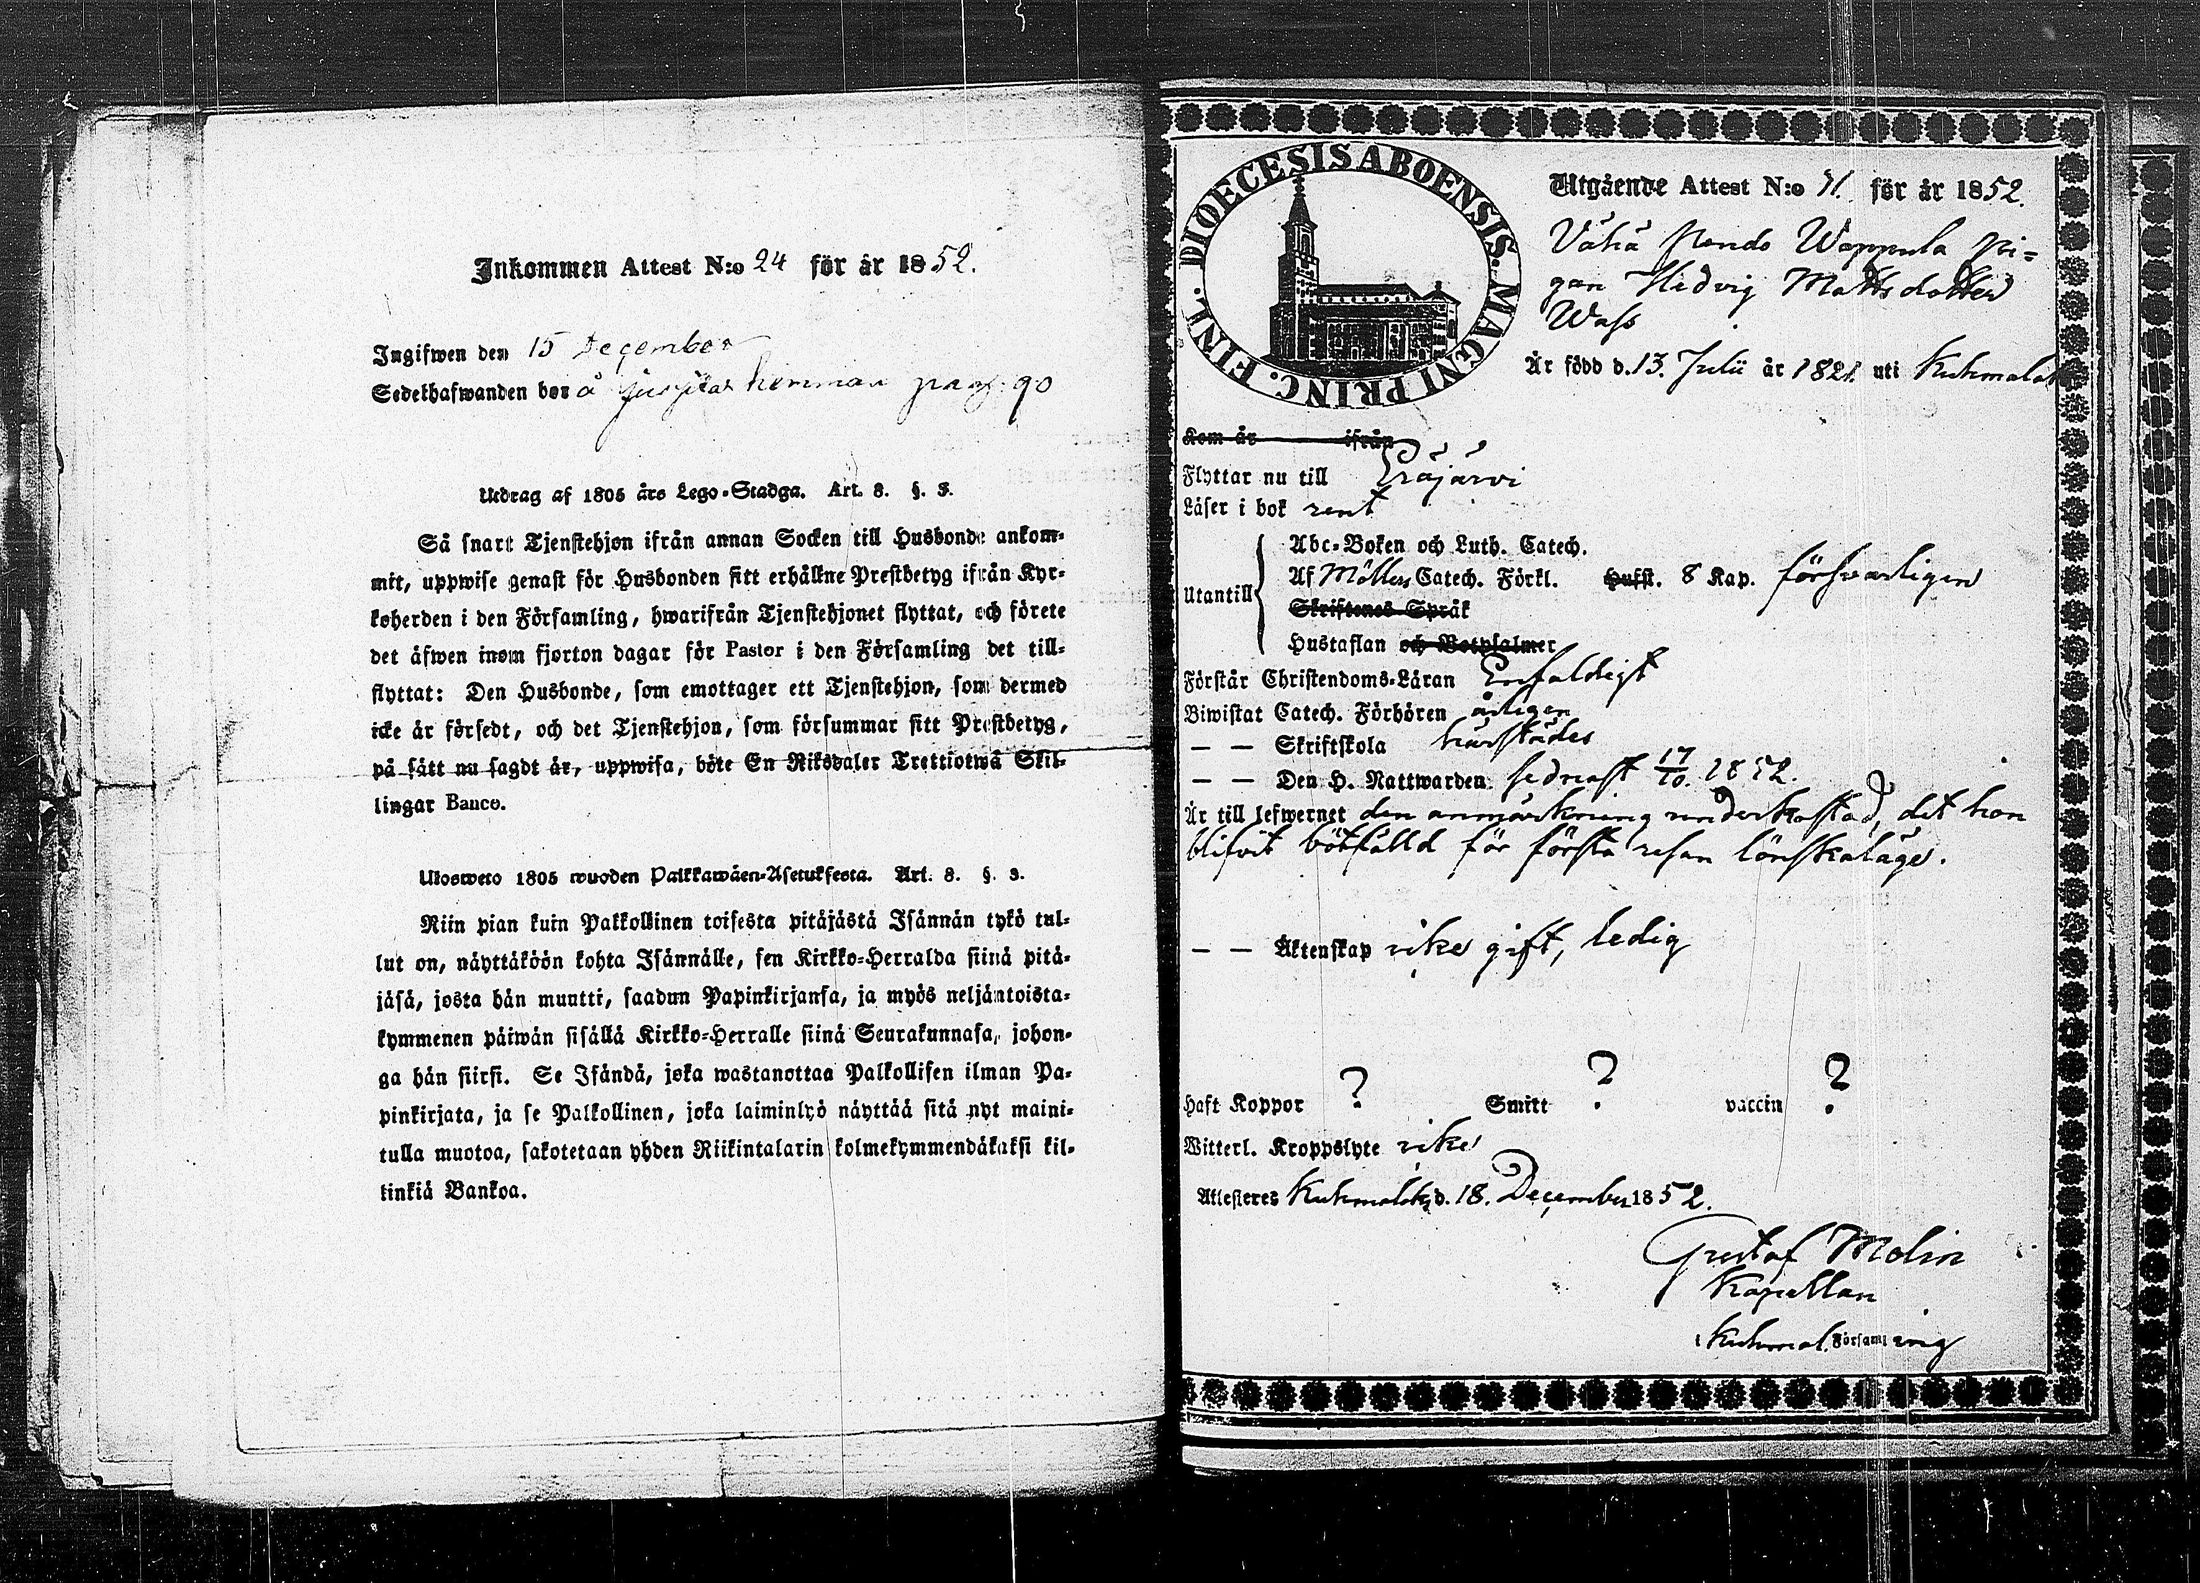 Inkommen Attest N:o 24 för år 1852.
Ingifwen den 15 December
Sedelhafwanden bor å hemman pag. 90
Utdrag af 1805 års Lego-Stadga. Art. 8. §. 3.
Så snart Tjenstehjon ifrån annan Socken till Husbonde ankom-
mit, uppwise genast för Husbonden sitt erhållne Prestbetyg ifrån Kyr-
koherden i den Församling, hwarifrån Tjenstehjonet flyttat, och förete
det äfwen inom fjorton dagar för Pastor i den Församling det till-
flyttat: Den Husbonde, som emottager ett Tjenstehjon, som dermed
icke är försedt, och det Tjenstehjon, som försummar sitt Prestbetyg,
på sätt nu sagdt är, uppwisa, böte En Riksdaler Trettiotwå Skil-
lingar Banco.
Ulosweto 1805 wuoden Palkkawäen-Asetuksesta. Art. 8. §. 3.
Niin pian kuin Palkollinen toisesta pitäjästä Isännän tykö tul-
lut on, näyttäköön kohta Isännälle, sen Kirkko-Herralda siinä pitä-
jäsä, josta hän muutti, saadun Papinkirjansa, ja myös neljäntoista-
kymmenen päiwän sisällä Kirkko-Herralle siinä Seurakunnasa, johon-
ga hän siirsi. Se Isändä, joka wastanottaa Palkollisen ilman Pa-
pinkirjata, ja se Palkollinen, joka laiminlyö näyttää sitä nyt maini-
tulla muotoa, sakotetaan yhden Riikintalarin kolmekymmendäkaksi kil-
linkiä Bankoa.
DIOECESIS ABOENSIS. MAGNI PRINC. FINL.
Utgående Attest N:o 71. för år 1852.
Vähä Pendo Wappula pi-
gan Hedvig Mattsdotter
Wass
Är född d. 13. Julii år 1821. uti Kuhmalak
Kom år ifrån
Flyttar nu till Eräjärvi
Läser i bok rent
Utantill
Abc-Boken och Luth. Catech.
Af Möllers Catech. Förkl. Husst. 8 Kap. försvarligen
Skriftenes Språk
Hustaflan och Botpsalmer
Förstår Christendoms-Läran Enfaldigt
Biwistat Catech. Förhören årligen
— — Skriftskola härstädes
— — Den H. Nattwarden sednast 17/10. 1852.
Är till lefwernet den anmärkning underkastad, det hon
blifvit bötfälld för första resan lönskaläge.
— — Äktenskap icke gift, ledig
Haft Koppor ? Smitt ? vaccin ?
Witterl. Kroppslyte icke
Attesteres Kuhmalaks d. 18. December 1852.
Gustaf Molin
Kapellan
i Kuhmal. Församling